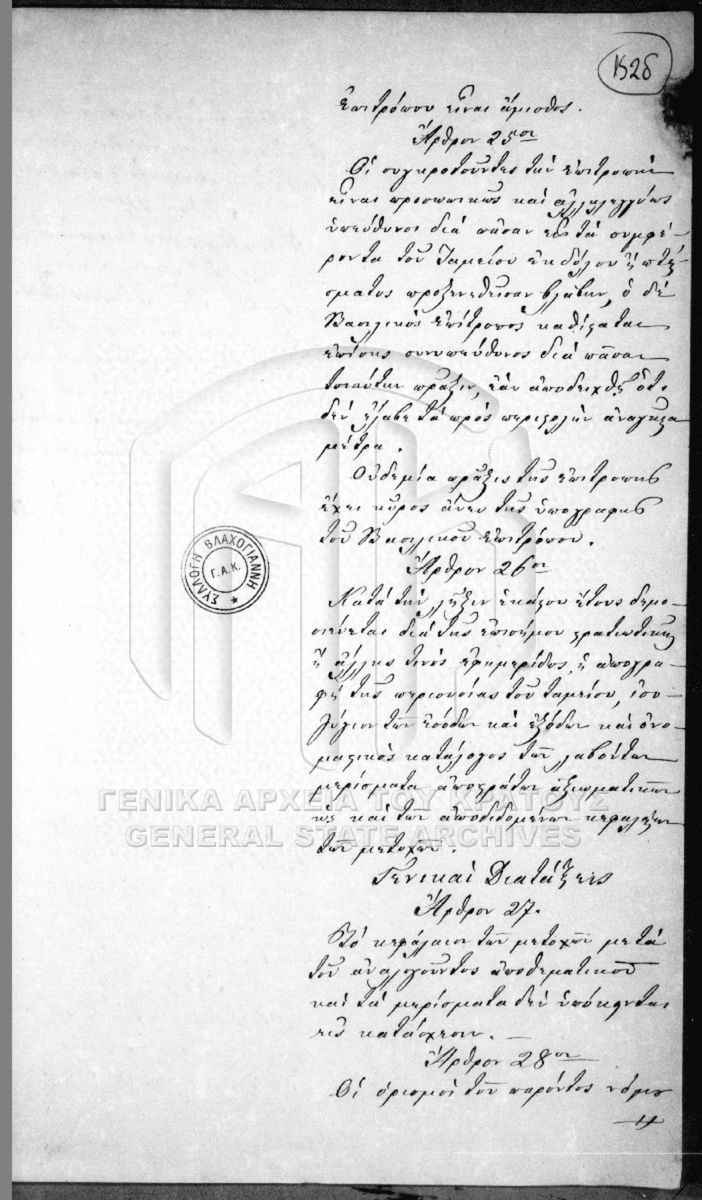 1528
Ἐπιτρόπου εἶναι ἄμισθος.
Ἄρθρον 25ον
Οἱ συγκροτοῦντες τὴν ἐπιτροπὴν
εἶναι προσωπικῶς καὶ ἀλληλεγγύως
ὑπεύθυνοι διὰ πᾶσαν εἰς τὰ συμφέ-
ροντα τοῦ Ταμείου ἐκ δόλου ἢ πταί-
σματος προξενηθεῖσαν βλάβην, ὁ δὲ
Βασιλικὸς ἐπίτροπος καθίσταται
ἐπίσης συνυπεύθυνος διὰ πᾶσαν
τοιαύτην πρᾶξιν, ἐὰν ἀποδειχθῇ ὅτι
δὲν ἔλαβε τὰ πρὸς περιστολὴν ἀναγκαῖα
μέτρα.
Οὐδεμία πρᾶξις τῆς ἐπιτροπῆς
ἔχει κῦρος ἄνευ τῆς ὑπογραφῆς
τοῦ Βασιλικοῦ ἐπιτρόπου.
Ἄρθρον 26ον
Κατὰ τὴν λῆξιν ἑκάστου ἔτους δημο-
σιεύεται διὰ τῆς ἐπισήμου στρατιωτικῆς
ἢ ἄλλης τινὸς ἐφημερίδος, ἡ ἀπογρα-
φὴ τῆς περιουσίας τοῦ ταμείου, ἰσο-
λόγιον τῶν ἐσόδων καὶ ἐξόδων καὶ ὀνο-
μαστικὸς κατάλογος τῶν λαβόντων
μερίσματα ἀποστράτων ἀξιωματικῶν
ὡς καὶ τῶν ἀποδιδομένων κεφαλαίων
τῶν μετοχῶν.
Γενικαὶ Διατάξεις
Ἄρθρον 27.
Τὸ κεφάλαιον τῶν μετοχῶν μετὰ
τοῦ ἀναλογοῦντος ἀποθεματικοῦ
καὶ τὰ μερίσματα δὲν ὑπόκεινται
εἰς κατάσχεσιν. —
Ἄρθρον 28ον
Οἱ ὁρισμοὶ τοῦ παρόντος νόμου
ΣΥΛΛΟΓΗ ΒΛΑΧΟΓΙΑΝΝΗ
Γ.Α.Κ.
ΓΕΝΙΚΑ ΑΡΧΕΙΑ ΤΟΥ ΚΡΑΤΟΥΣ
GENERAL STATE ARCHIVES